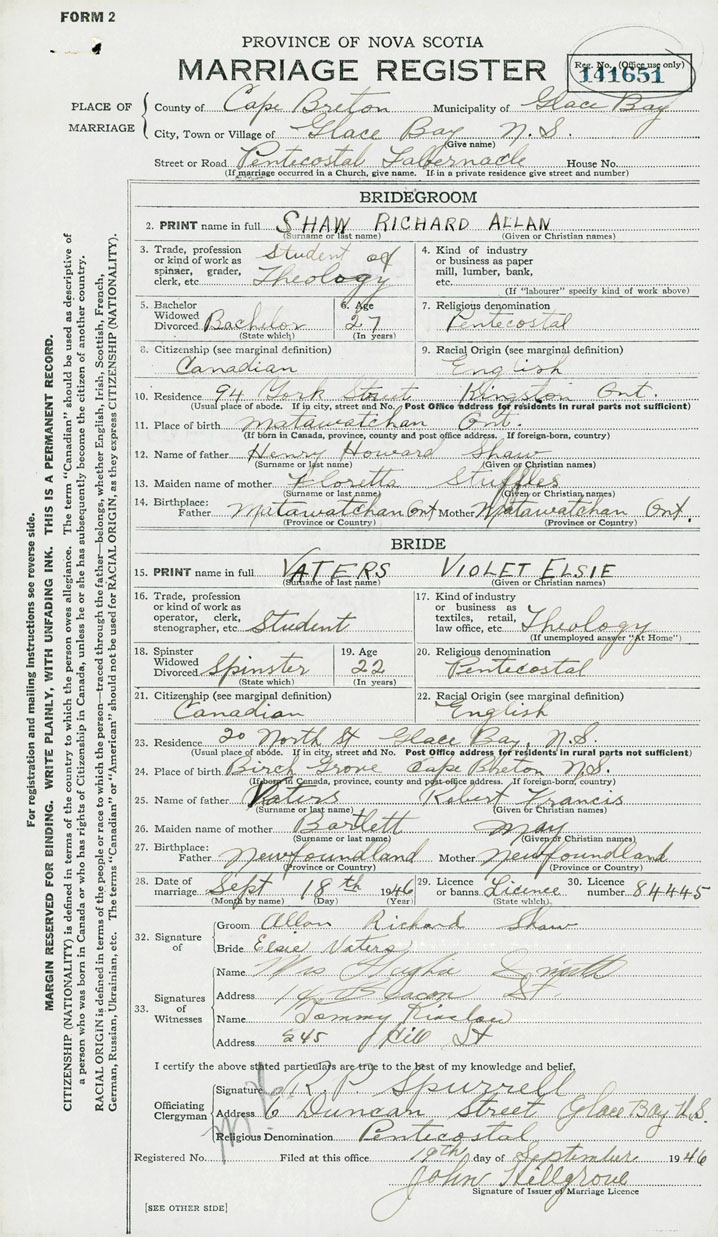 FORM 2
PROVINCE OF NOVA SCOTIA
MARRIAGE REGISTER
Reg. No. (Office use only)
141651
PLACE OF MARRIAGE
County of Cape Breton Municipality of Glace Bay
City, Town or Village of Glace Bay N.S.
(Give name)
Street or Road Pentecostal Tabernacle House No.
(If marriage occurred in a Church, give name. If in a private residence give street and number)
BRIDEGROOM
2. PRINT name in full SHAW RICHARD ALLAN
(Surname or last name) (Given or Christian names)
3. Trade, profession or kind of work as spinner, grader, clerk, etc. Student of Theology
4. Kind of industry or business as paper mill, lumber, bank, etc.
(If "labourer" specify kind of work above)
5. Bachelor Widowed Divorced Bachelor
(State which)
6. Age 27
(In years)
7. Religious denomination
Pentecostal
8. Citizenship (see marginal definition)
Canadian
9. Racial Origin (see marginal definition)
English
10. Residence 94 York Street Kingston Ont.
(Usual place of abode. If in city, street and No. Post Office address for residents in rural parts not sufficient)
11. Place of birth Matawatchan Ont.
(If born in Canada, province, county and post office address. If foreign-born, country)
12. Name of father Henry Howard Shaw
(Surname or last name) (Given or Christian names)
13. Maiden name of mother Floretta Struffles
(Surname or last name) (Given or Christian names)
14. Birthplace: Father Matawatchan Ont Mother Matawatchan Ont.
(Province or Country) (Province or Country)
BRIDE
15. PRINT name in full VATERS VIOLET ELSIE
(Surname or last name) (Given or Christian names)
16. Trade, profession or kind of work as operator, clerk, stenographer, etc. Student
17. Kind of industry or business as textiles, retail, law office, etc. Theology
(If unemployed answer "At Home")
18. Spinster Widowed Divorced Spinster
(State which)
19. Age
22
(In years)
20. Religious denomination
Pentecostal
21. Citizenship (see marginal definition)
Canadian
22. Racial Origin (see marginal definition)
English
23. Residence 20 North St Glace Bay N.S.
(Usual place of abode. If in city, street and No. Post Office address for residents in rural parts not sufficient)
24. Place of birth Birch Grove Cape Breton N.S.
(If born in Canada, province, county and post-office address. If foreign-born, country)
25. Name of father Vaters Robert Francis
(Surname or last name) (Given or Christian names)
26. Maiden name of mother Bartlett May
(Surname or last name) (Given or Christian names)
27. Birthplace: Father Newfoundland Mother Newfoundland
(Province or Country) (Province or Country)
28. Date of marriage Sept 18th 1946
(Month by name) (Day) (Year)
29. Licence or banns Licence
(State which)
30. Licence number 84445
32. Signature of
Groom Allan Richard Shaw
Bride Elsie Vaters
33. Signatures of Witnesses
Name Mrs Smith
Address 14 Beacon St.
Name Tommy
Address 245 Hill St
I certify the above stated particulars are true to the best of my knowledge and belief,
Officiating Clergyman
Signature R. P. Spurrell
Address 6 Duncan Street Glace Bay N.S.
Religious Denomination Pentecostal
Registered No. Filed at this office 19th day of September 1946
John Hillgrove
Signature of Issuer of Marriage Licence
[SEE OTHER SIDE]
For registration and mailing instructions see reverse side.
MARGIN RESERVED FOR BINDING. WRITE PLAINLY, WITH UNFADING INK. THIS IS A PERMANENT RECORD.
CITIZENSHIP (NATIONALITY) is defined in terms of the country to which the person owes allegiance. The term "Canadian" should be used as descriptive of
a person who was born in Canada or who has rights of Citizenship in Canada, unless he or she has subsequently become the citizen of another country.
RACIAL ORIGIN is defined in terms of the people or race to which the person—traced through the father—belongs, whether English, Irish, Scottish, French,
German, Russian, Ukrainian, etc. The terms "Canadian" or "American" should not be used for RACIAL ORIGIN, as they express CITIZENSHIP (NATIONALITY).